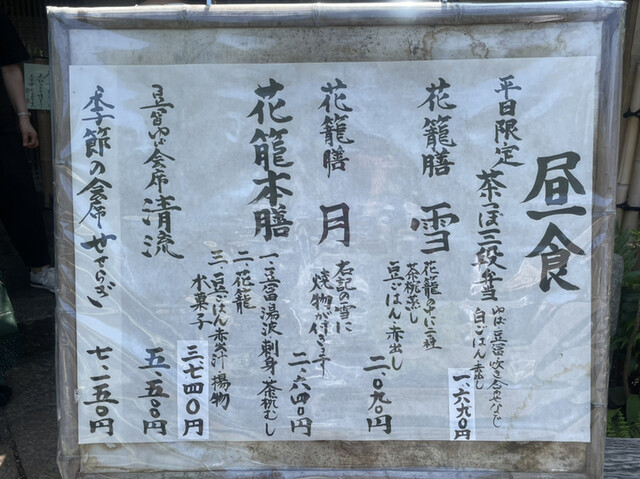 昼食
平日限定
茶つぼ三段弁
ゆば 豆富 吹き合せなど
白ごはん 赤出し
一、六九〇円
花籠膳 雪
花籠の中に二種
茶椀蒸し
豆ごはん・赤出し
二、〇九〇円
花籠膳 月
右記の雪に
焼物が付きます
二、六四〇円
花籠本膳
一、豆富 湯波刺身 茶椀むし
二、花籠
三、豆ごはん 赤出汁 揚物
水菓子
三七四〇円
豆富ゆば会席 清流
五、五〇〇円
季節の会席 せせらぎ
七、一五〇円